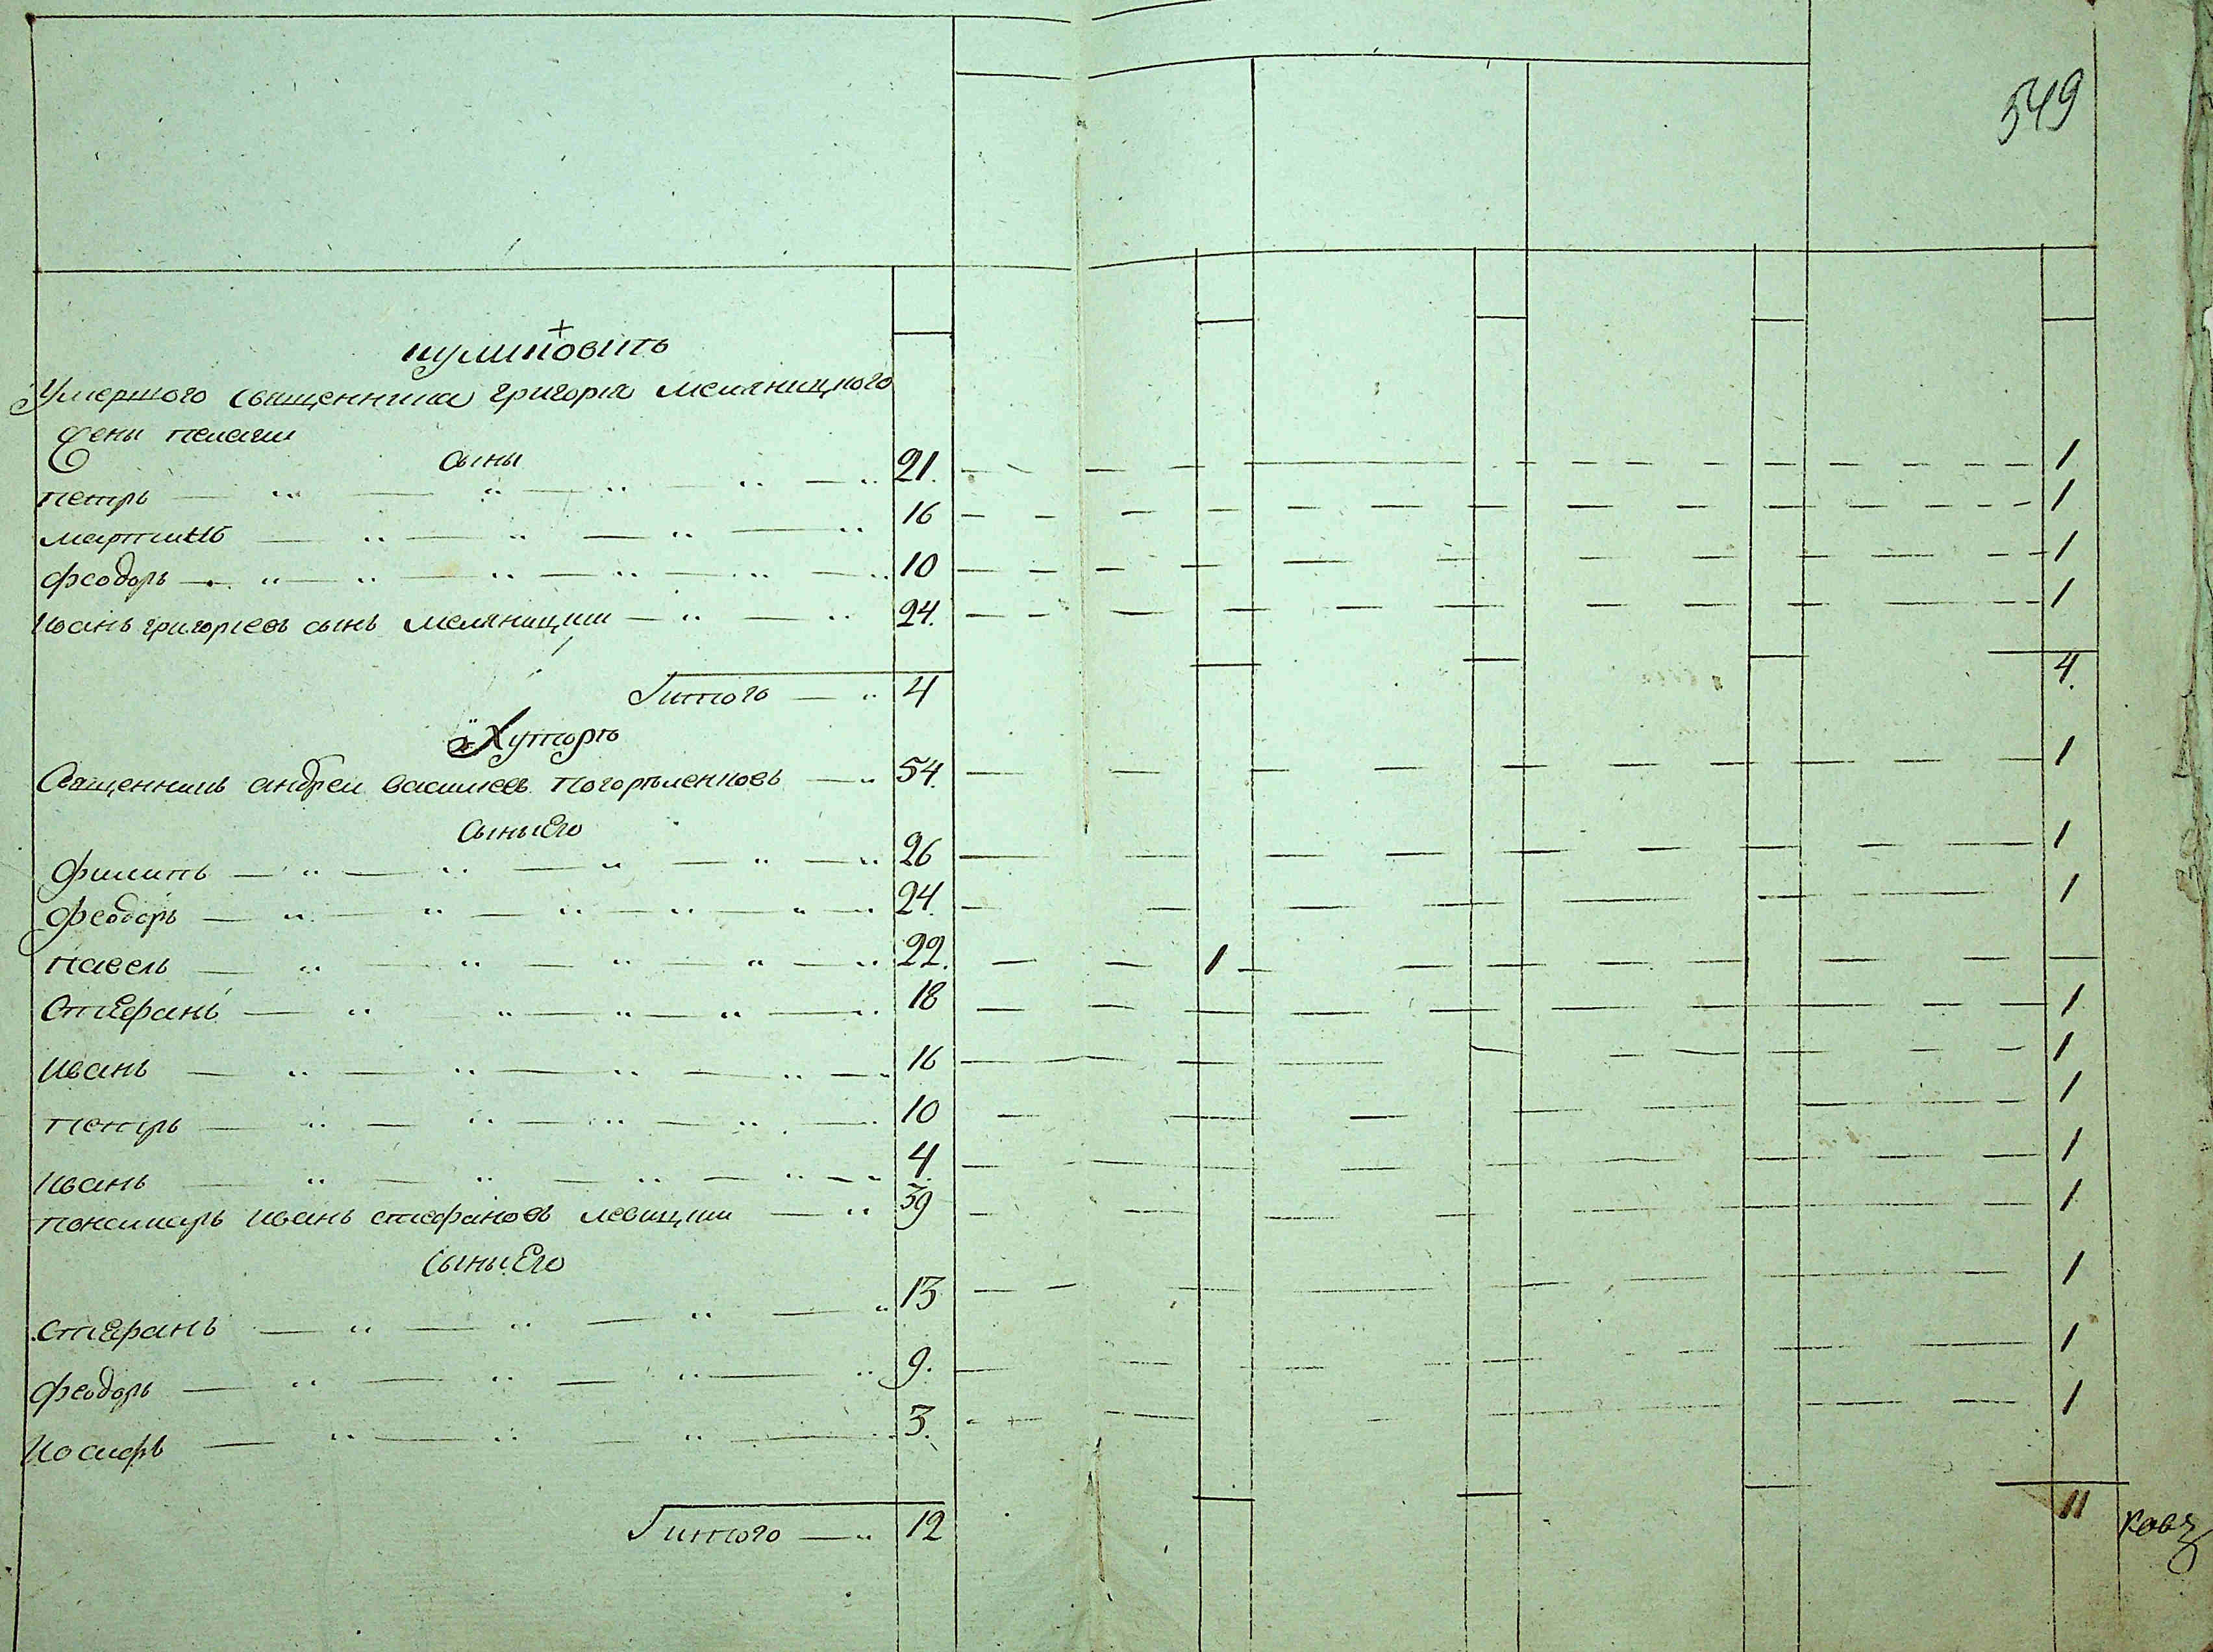 549
Умершого священника григорія меляницкого
жены пелагии
сыны
петръ 21. 1
мартинъ 16 1
феодоръ 10 1
иванъ григориевъ сынъ меляницкии 24. 1
итого 4 4.
Хуторъ
Священникъ андреи василиевъ погорѣленковъ 54. 1
сыны Его
филипъ 26 1
феодоръ 24. 1
павелъ 22. 1
стефанъ 18 1
иванъ 16 1
петръ 10 1
иванъ 4. 1
пономаръ иванъ стефановъ левицкии 39 1
сыны Его
стефанъ 13 1
феодоръ 9. 1
иосифъ 3. 1
итого 12 11